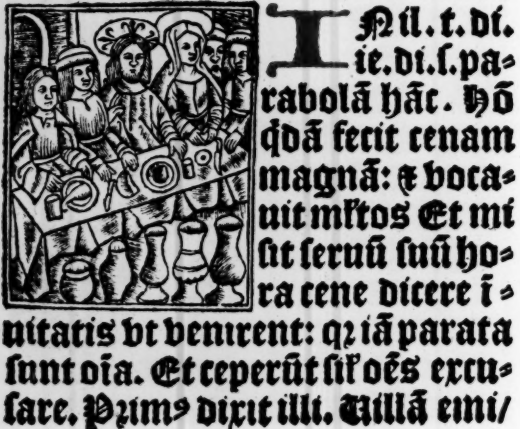 IN il. t. di.
ie. di. s. pa⸗
rabolã hãc. Hõ
q̇dã fecit cenam
magnã: ⁊ voca⸗
uit mĺtos Et mi
sit seruũ suũ ho⸗
ra cene dicere ĩ⸗
uitatis vt venirent: qꝛ iã parata
sunt oĩa. Et ceperũt siĺ oẽs excu⸗
sare. Prim⁹ dixit illi. Uillã emi/